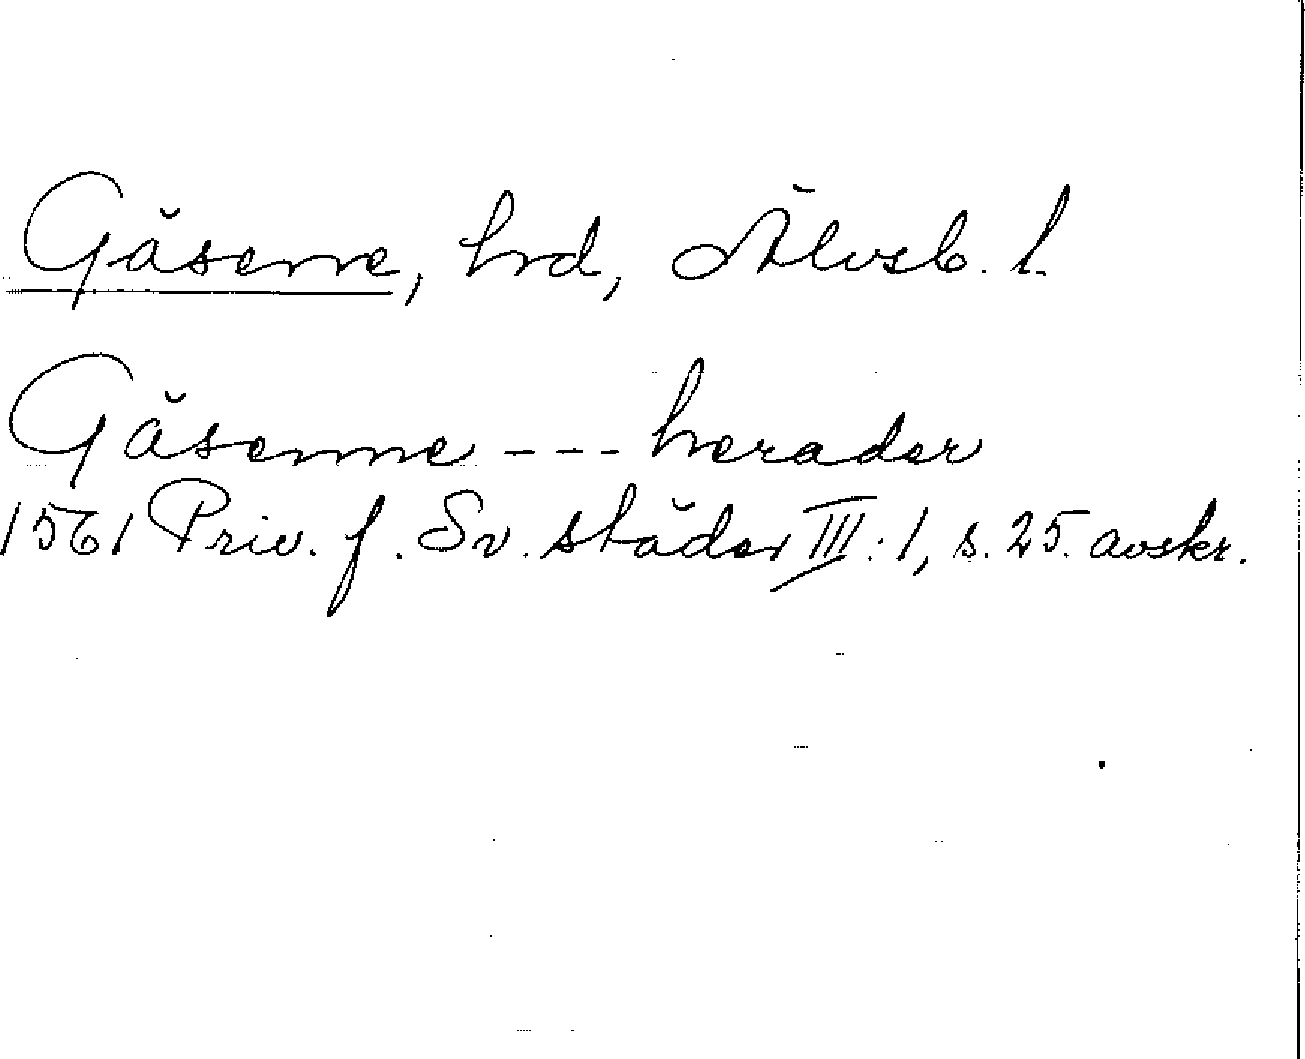 Gäsene, hrd, Älvsb. l.
Gäsenne --- herader
1561 Priv. f. Sv. städer III:1, s. 25. avskr.